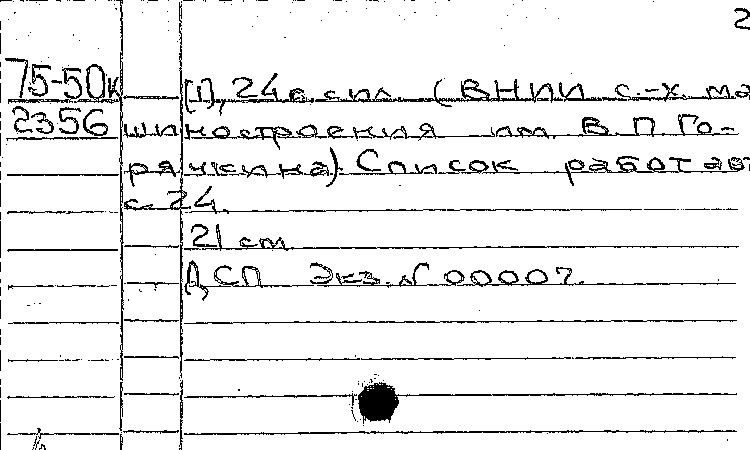 2
75-50к [1], 24 с. ил. (ВНИИ с.-х. ма
2356 шиностроения им. В. П. Го-
рячкина). Список работ авт
с. 24.
21 см.
ДСП Экз. № 00007.